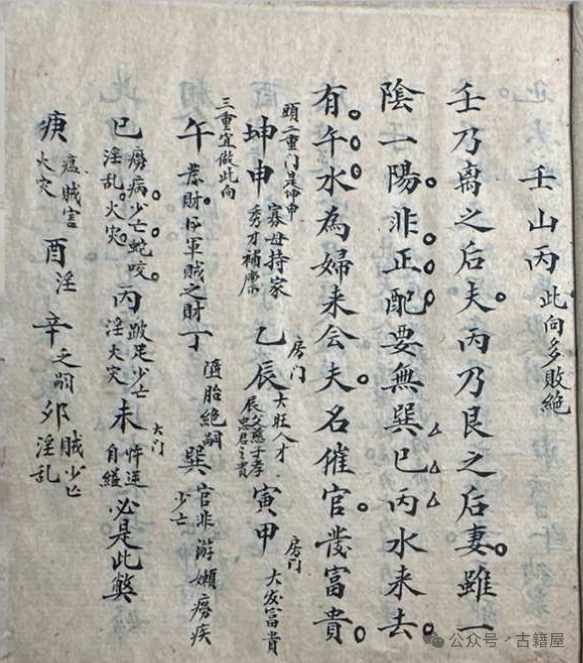 壬山丙 此向多敗絶
壬乃离之后夫丙乃艮之后妻雖一
陰一陽非正配要無巽巳丙水来去
有午水為婦来会夫名催官發富貴
頭二重门是坤申
坤申 寡母持家 秀才補廩 乙辰 房门 大旺人才 辰父慈子孝忠君之貴 寅甲 房门 大发富貴
三重宜做此向
午 財 軍賊之財 丁 墮胎絶嗣 巽 官非游嬾癆疾 少亡
巳 癆病少亡蛇咬 淫乱火灾 丙 跛足少亡 淫火灾 未 大门 忤逆 自縊 必是此獘
庚 瘟賊言 火灾 酉 淫 辛 之嗣 卯 賊少亡 淫乱
公众号·古籍屋